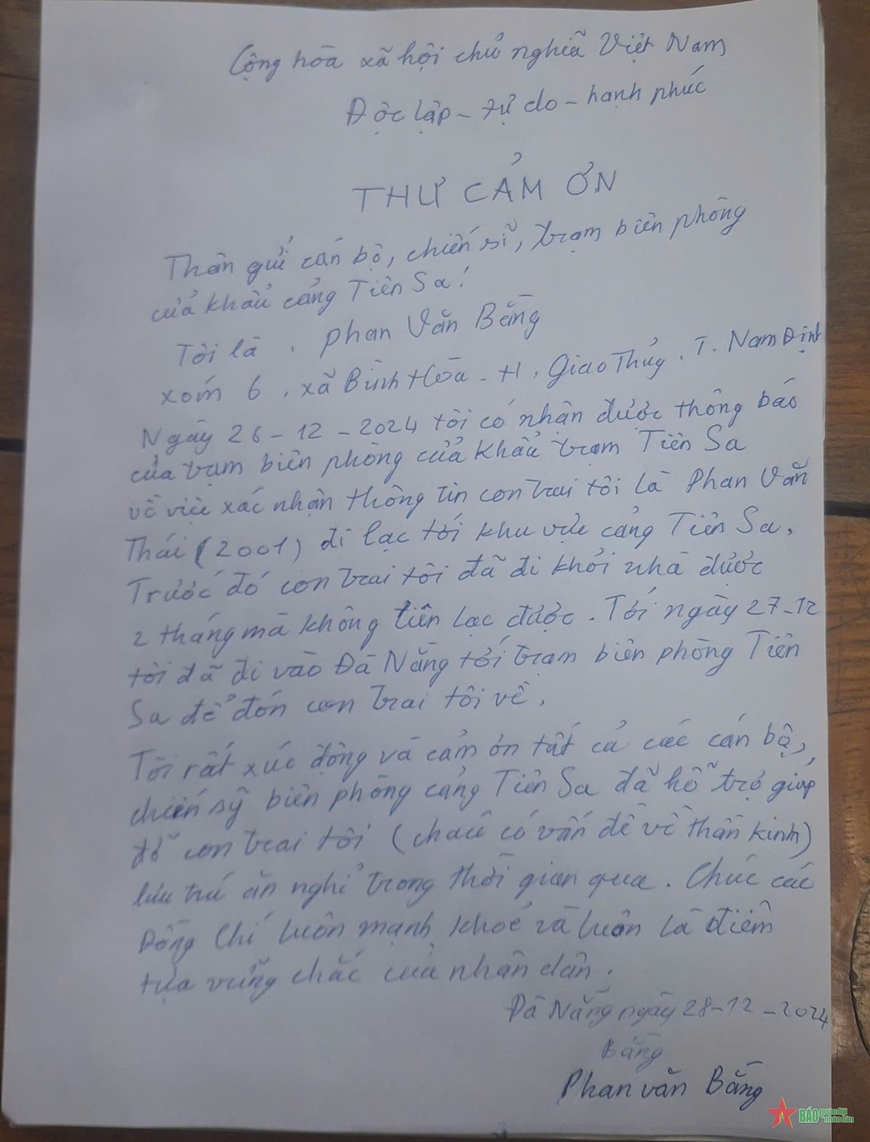 Cộng hòa xã hội chủ nghĩa Việt Nam
Độc lập - tự do - hạnh phúc
THƯ CẢM ƠN
Thân gửi cán bộ, chiến sĩ, trạm biên phòng
cửa khẩu cảng Tiên Sa!
Tôi là . Phan Văn Bằng
xóm 6 . xã Bình Hòa - H . Giao Thủy . T . Nam Định
Ngày 26 - 12 - 2024 tôi có nhận được thông báo
của trạm biên phòng cửa khẩu trạm Tiên Sa
về việc xác nhận thông tin con trai tôi là Phan Văn
Thái (2001) đi lạc tới khu vực cảng Tiên Sa.
Trước đó con trai tôi đã đi khỏi nhà được
2 tháng mà không liên lạc được. Tới ngày 27-12
tôi đã đi vào Đà Nẵng tới trạm biên phòng Tiên
Sa để đón con trai tôi về.
Tôi rất xúc động và cảm ơn tất cả các cán bộ,
chiến sỹ biên phòng cảng Tiên Sa đã hỗ trợ giúp
đỡ con trai tôi (cháu có vấn đề về thần kinh)
lưu trú ăn nghỉ trong thời gian qua. Chúc các
Đồng Chí luôn mạnh khoẻ và luôn là điểm
tựa vững chắc của nhân dân.
Đà Nẵng ngày 28-12-2024
Bằng
Phan văn Bằng
BÁO QUÂN ĐỘI NHÂN DÂN